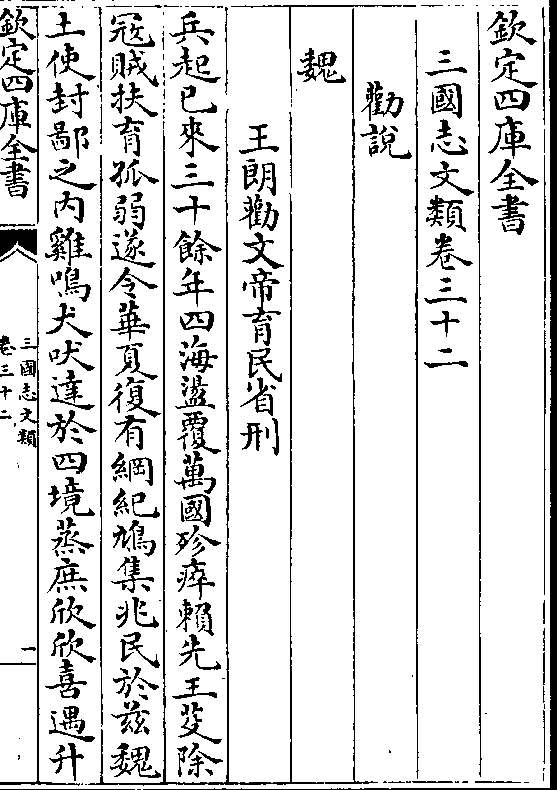 欽定四庫全書
三國志文類卷三十二
勸說
魏
王朗勸文帝育民省刑
兵起已來三十餘年四海盪覆萬國殄瘁賴先王芟除
冦賊扶育孤弱遂令華夏復有綱紀鳩集兆民於兹魏
土使封鄙之内雞鳴犬吠達於四境蒸庶欣欣喜遇升
欽定四庫全書
三國志文類
卷三十二
一